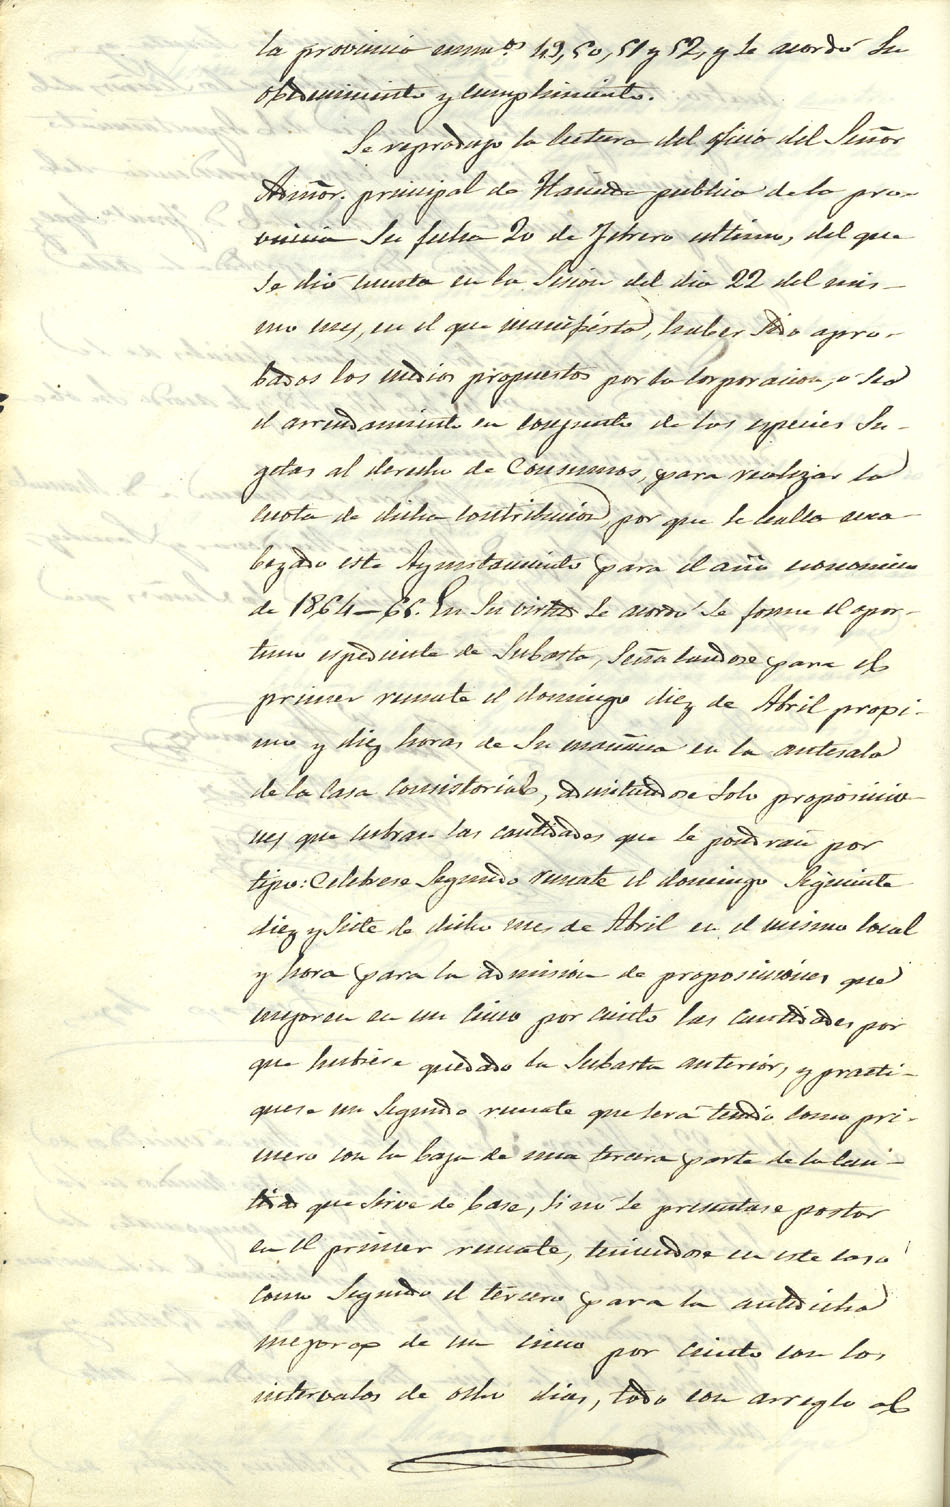 la provincia numos 49, 50, 51 y 52, y se acordó su
obedecimiento y cumplimiento.
Se reprodujo la lectura del oficio del Señor
Admōr. principal de Hacienda publica de la pro-
vincia su fecha 20 de Febrero ultimo, del que
se dió cuenta en la sesion del dia 22 del mis-
mo mes, en el que manifiesta, haber sido apro-
bados los medios propuestos por la Corporacion, ó sea
el arrendamiento en conjunto de las especies su-
getas al derecho de Consumos, para realizar la
cuota de dicha contribucion, por que se halla enca-
bezado este Ayuntamiento para el año economico
de 1864-65. En su virtud se acordó se forme el opor-
tuno espediente de subasta, señalandose para el
primer remate el domingo diez de Abril propi-
mo y diez horas de su mañana en la antesala
de la Casa Consistorial, admitiendose solo proposicio-
nes que cubran las cantidades que se pondran por
tipo: Celebrese segundo remate el domingo siguiente
diez y siete de dicho mes de Abril en el mismo local
y hora para la admision de proposiciones que
mejoren en un cinco por ciento las cantidades por
que hubiere quedado la subasta anterior, y practi-
quese un segundo remate que será tenido como pri-
mero con la baja de una tercera parte de la can-
tidad que sirve de base, si nó se presentase postor
en el primer remate, teniendose en este caso
como segundo el tercero para la antedicha
mejora de un cinco por ciento con los
intervalos de ocho dias, todo con arreglo al